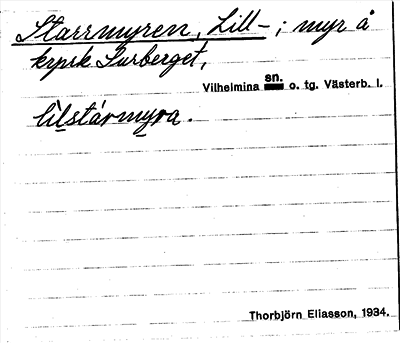 Starrmyren, Lill-; myr å
krprk Surberget,
sn.
Vilhelmina o. tg. Västerb. l.
lilstármyra.
Thorbjörn Eliasson, 1934.